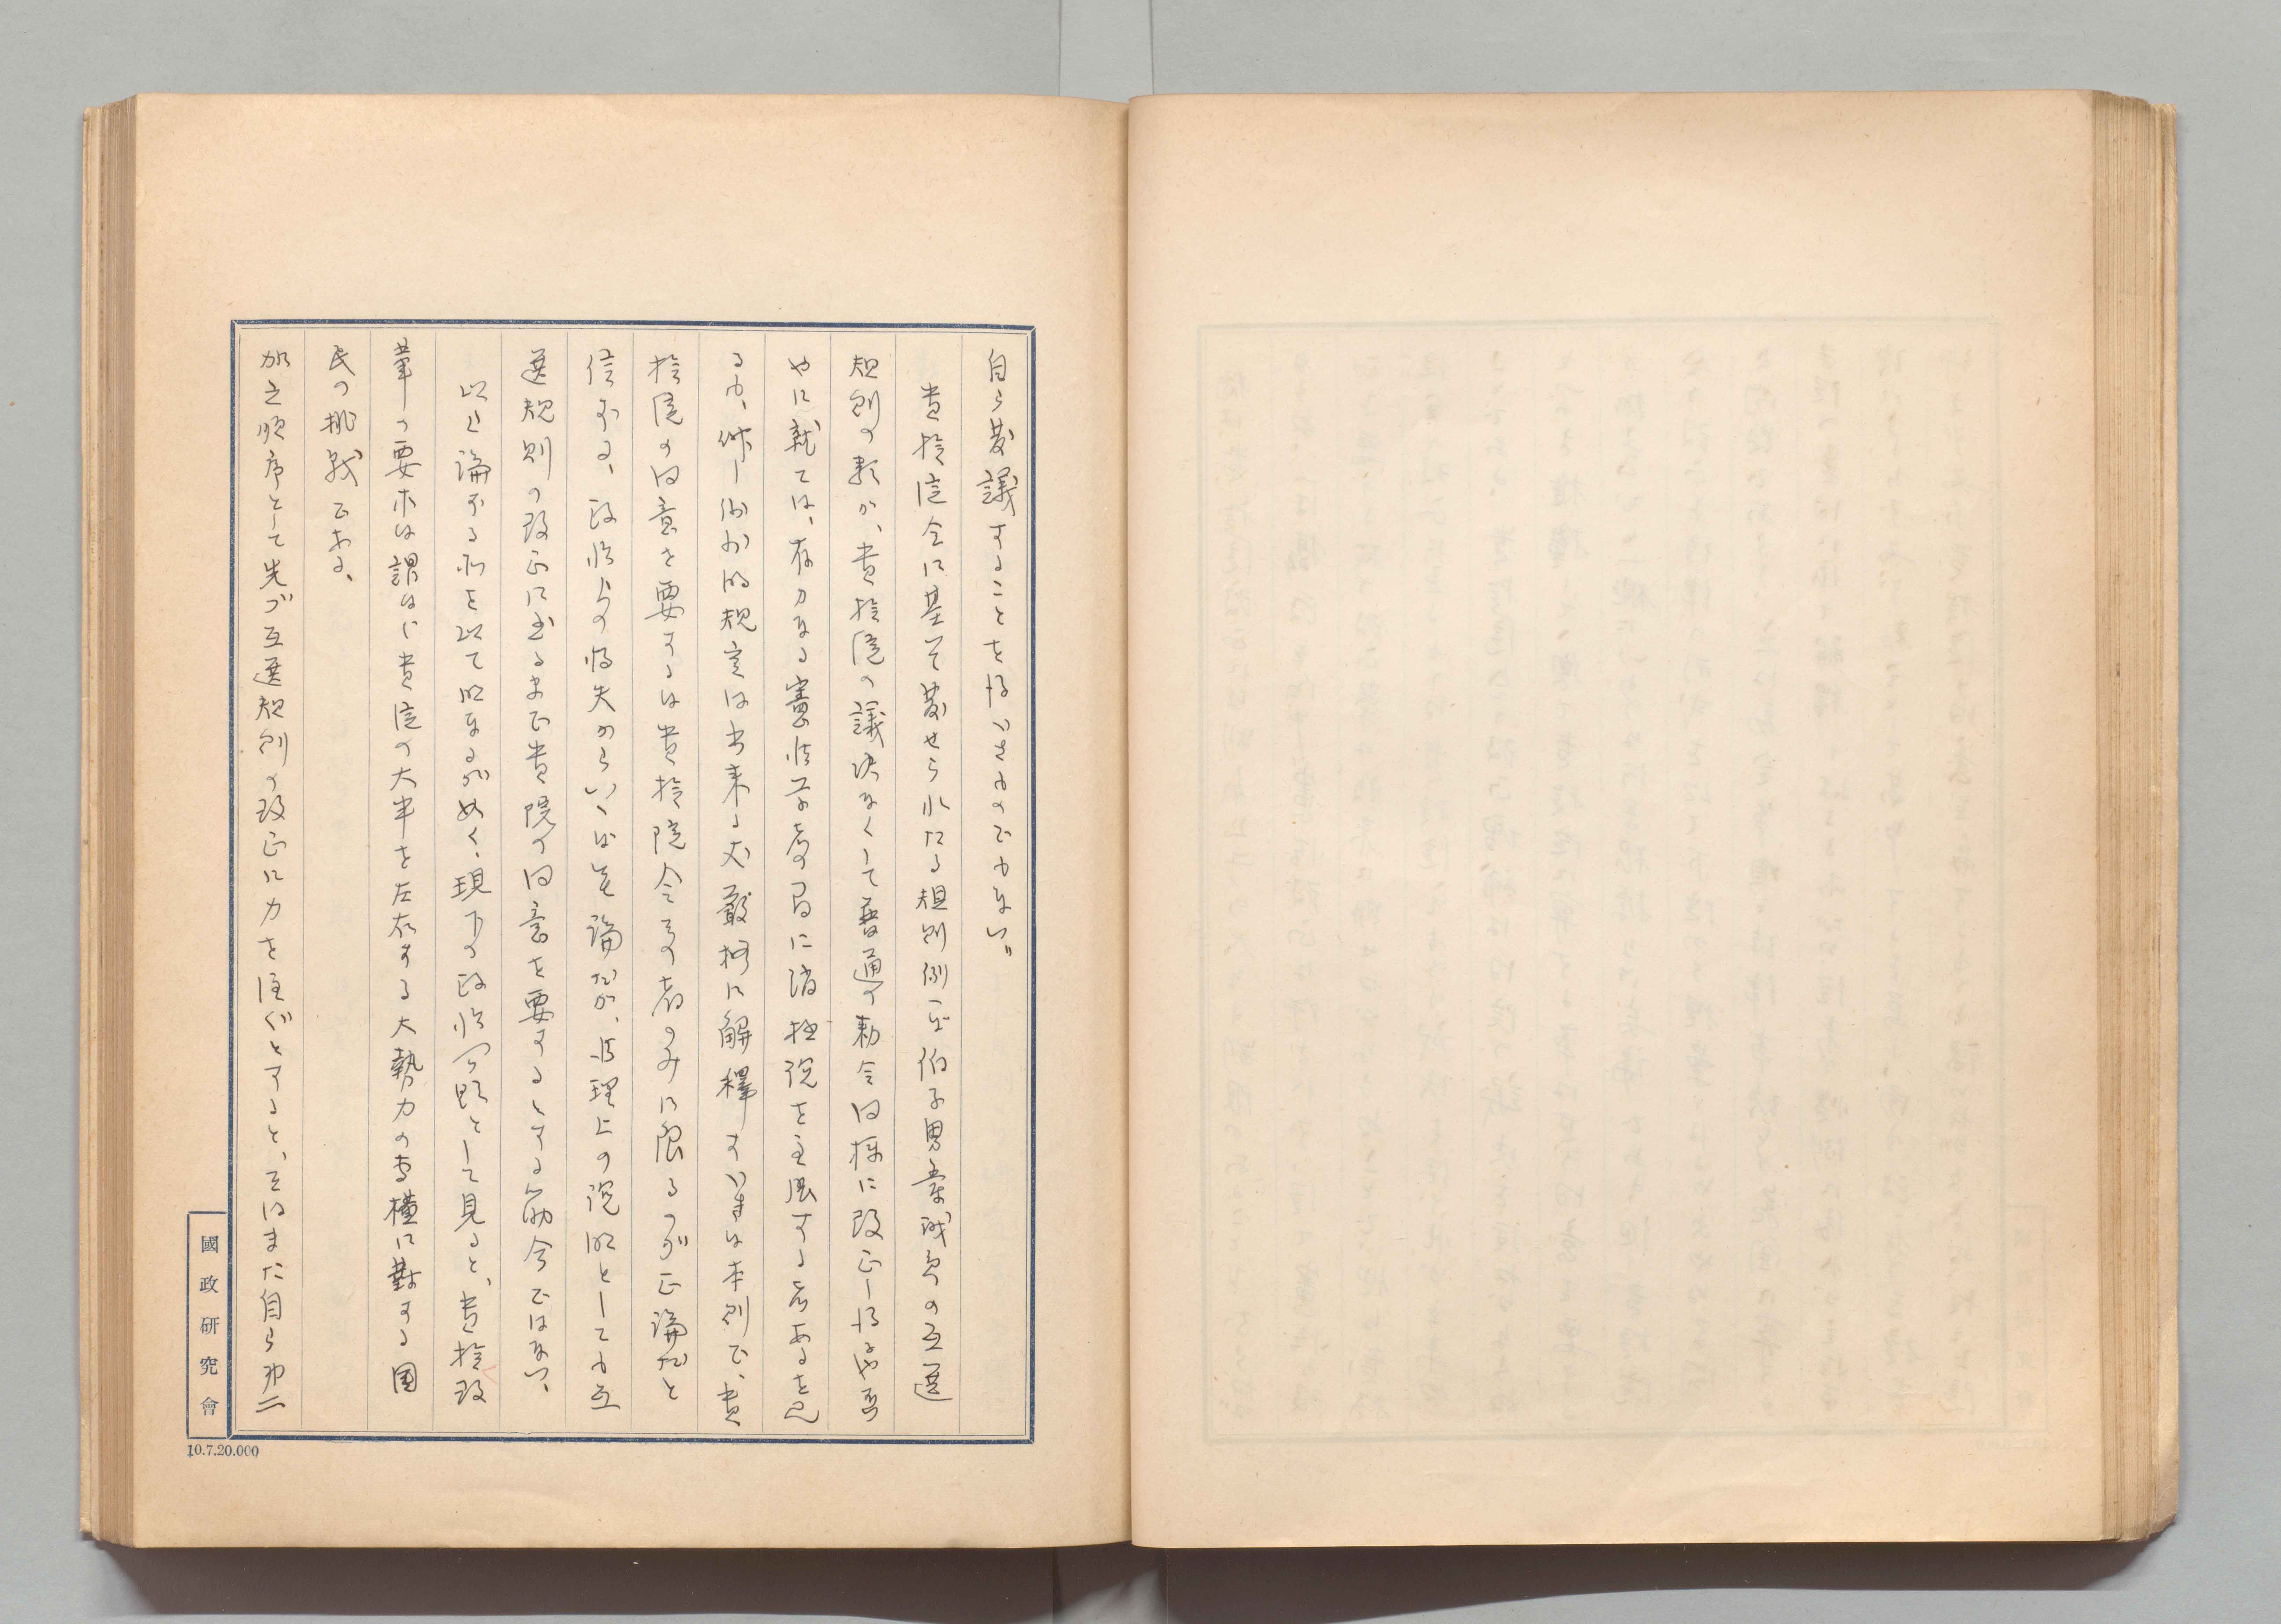 自ら発議することを得べきものでもない。
貴族院令に基いて発せられたる規則例ヘば伯子男爵議員の互選
規則の類が、貴族院の議決なくして普通の勅令同様に改正し得るや否
やに就ては、有力なる憲法学者の間に消極説を主張する者あるを見
るも、併し例外的規定は出来る丈厳格に解釋すべきは本則で、貴
族院の同意を要するは貴族院令その者のみに限るのが正論だと
信ずる、政治上の得失からいへば勿論だが、法理上の説明としても互
選規則の改正に至るまで貴院の同意を要するとする筋合ではない、
以上論ずる所を以て明なるが如く、現下の政治問題として見ると、貴族改
革の要求は謂はゞ貴院の大半を左右する大勢力の専横に對する国
民の挑戦である、
加之順序として先づ互選規則の改正に力を注ぐとすると、そはまた自ら第二
國政研究會
10.7.20.000